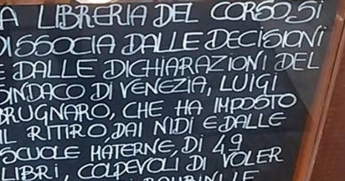 A LIBRERIA DEL CORSO SI
DISSOCIA DALLE DECISIONI
E DALLE DICHIARAZIONI DEL
SINDACO DI VENEZIA, LUIGI
BRUGNARO, CHE HA IMPOSTO
IL RITIRO, DAI NIDI E DALLE
SCUOLE MATERNE, DI 49
LIBRI, COLPEVOLI DI VOLER